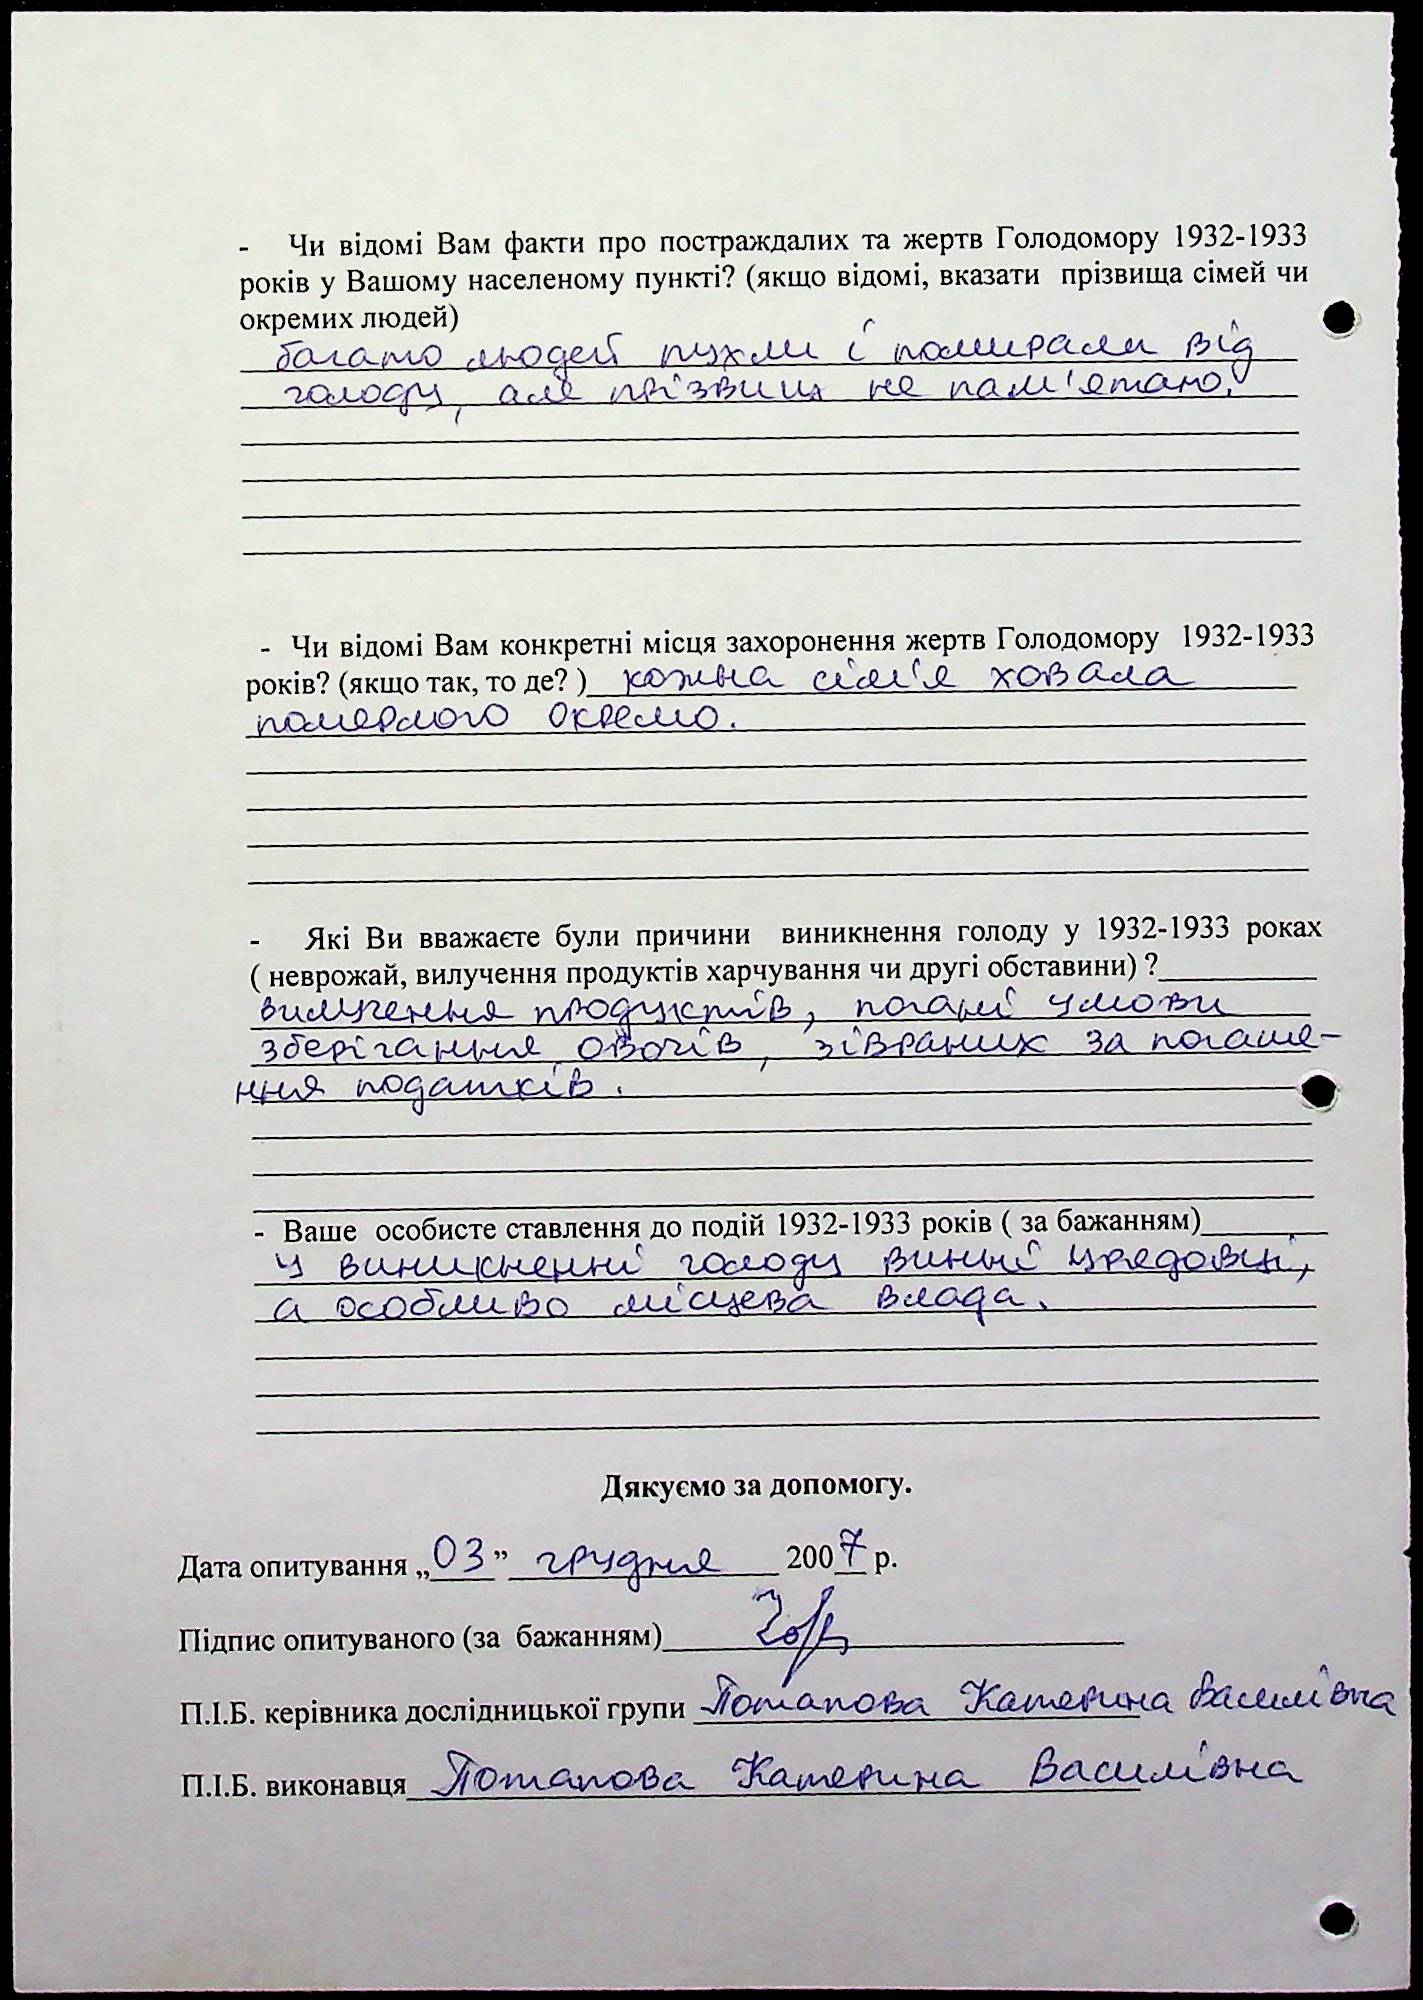 - Чи відомі Вам факти про постраждалих та жертв Голодомору 1932-1933
років у Вашому населеному пункті? (якщо відомі, вказати прізвища сімей чи
окремих людей)
багато людей пухли і помирали від
голоду, але прізвищ не пам'ятаю.
- Чи відомі Вам конкретні місця захоронення жертв Голодомору 1932-1933
років? (якщо так, то де? ) кожна сім'я ховала
померлого окремо.
- Які Ви вважаєте були причини виникнення голоду у 1932-1933 роках
( неврожай, вилучення продуктів харчування чи другі обставини) ?
вилучення продуктів, погані умови
зберігання овочів, зібраних за погаше-
ння податків.
- Ваше особисте ставлення до подій 1932-1933 років ( за бажанням)
У виникненні голоду винні урядовці,
а особливо місцева влада.
Дякуємо за допомогу.
Дата опитування „03” грудня 2007 р.
Підпис опитуваного (за бажанням)
П.І.Б. керівника дослідницької групи Потапова Катерина Василівна
П.І.Б. виконавця Потапова Катерина Василівна